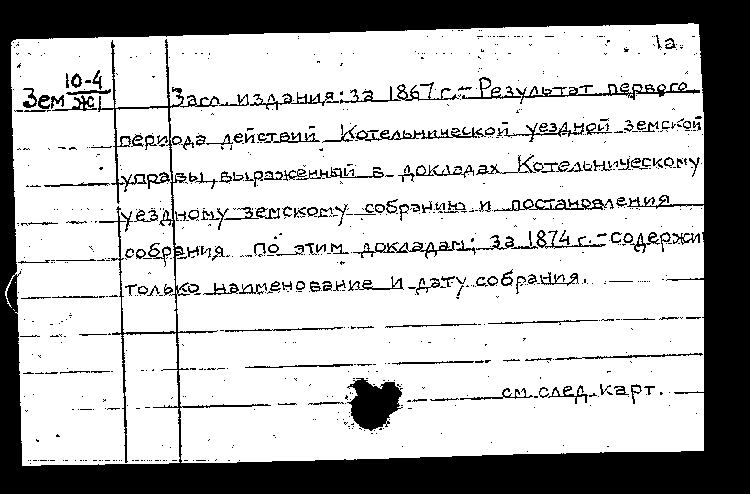 1а.
10-4
Зем ЖI Загл. издания: за 1867 г.- Результат первого
периода действий Котельнической уездной земской
управы, выраженный в докладах Котельническому
уездному земскому собранию и постановления
собрания по этим докладам; за 1874 г.-содержи
только наименование и дату собрания.
см. след. карт.